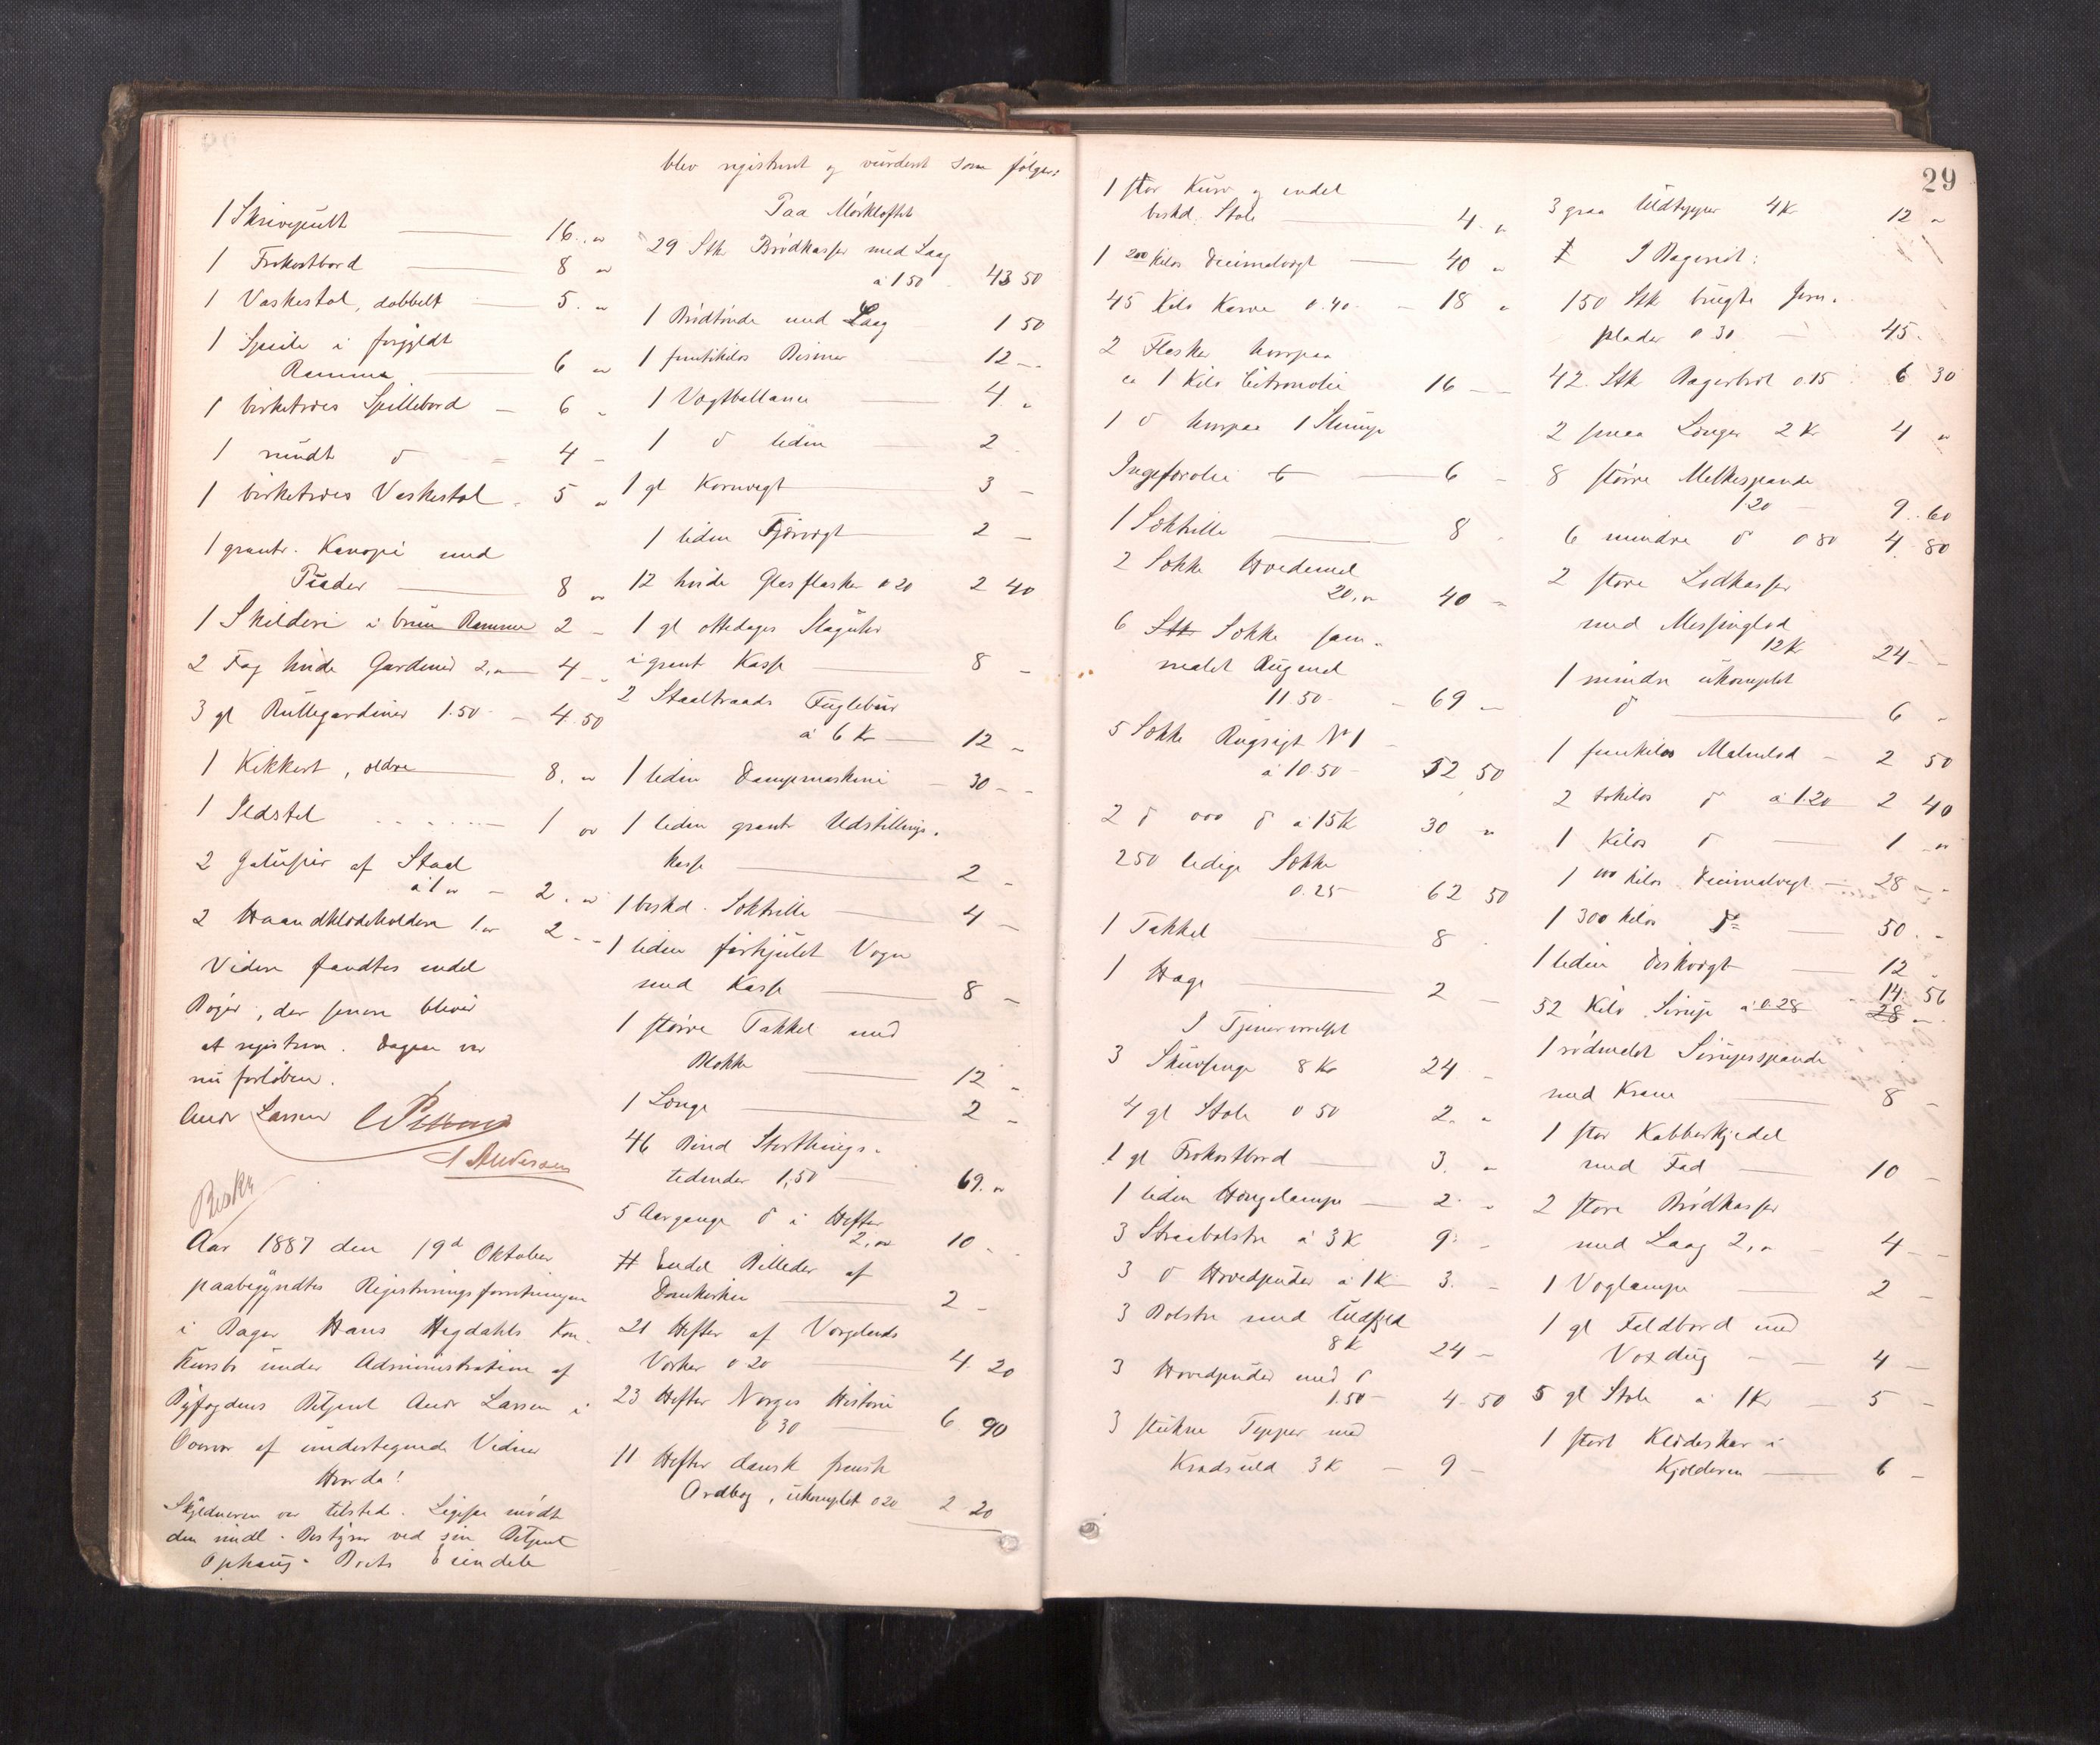 1 Skrivepult 16. "
1 Frokostbord 8 "
1 Vaskestol, dobbelt 5. "
1 Speile i forgyldt
Ramme 6 "
1 birketræes Spillebord 6 "
1 rundt do 4 -
1 birketræes Vaskestol 5 "
1 grantr. Kanape med
Puder 8 "
1 Skilderi i brun Ramme 2 -
2 Fag hvide Gardiner 2," 4 -
3 gl Rullegardiner 1.50 - 4.50
1 Kikkert, ældre 8. "
1 Ildstel 1 "
2 Galusier af Staal
à 1 " - 2. "
2 Haandklædeholdere 1. " 2 -
Videre fandtes endel
Bøger, der senere bliver
at registrere. Dagen var
nu forløben.
Andr Larsen
Andersen
Aar 1887 den 19d Oktober
paabegyndtes Registreringsforretningen
i Bager Hans Hegdahls Kon-
kursbo under Administration af
Byfogdens Betjent Andr Larsen i
Overvær af undertegnede Vidner
Hvorda!
Skyldneren var tilstede. Ligesaa mødt
den midl. Bestyrer ved sin Betjent
Ophaug. Boets Eiendele
blev registreret og vurderet som følger:
Paa Mørkloftet
29 Stk Brødkasser med Laag
à 1 50 43 50
1 Brødtønde med Laag 1 50
1 femtikilos Bismer 12 -
1 Vægtballance 4. "
1 do liden 2
1 gl Kornvægt 3 -
1 liden Fjærvægt 2 -
12 hvide Glasflasker 0 20 2 40
1 gl ottedages Slaguhr
i grant Kasse 8 -
2 Staaltraads Fuglebur
à 6 Kr 12 "
1 liden Dampmaskine 30 -
1 liden grantr Udstillings-
kasse 2 -
1 beskd. Sæktrille 4 -
1 liden firhjulet Vogn
med Kasse 8 -
1 større Takkel med
Blokke 12 -
1 Longe 2 -
46 Bind Storthings-
tidender 1,50 69. "
5 Aargange do i Hefter
2," 10 -
Endel Billeder af
Domkirken 2 -
21 Hefter af Vorgelands
Værker 0 20 4. 20
23 Hefter Norges Historie
0 30 6 90
11 Hefter dansk fransk
Ordbog, ukomplet 0 20 2 20
29
1 stor Kurv og endel
beskd. Stole 4. "
1 200 Kilos Decimalvægt 40 "
45 Kilo Karve 0.40. - 18 "
2 Flasker hvorpaa
ca 1 Kilo Citronolie 16 -
1 do hvorpaa 1 Slump
Ingefærolie 6 -
1 Sæktrille 8
2 Sække Hvedemel
20," 40 "
6 Stk Sække sam-
malet Rugmel
11.50 - 69 -
5 Sække Rugsigt No 1
à 10.50 - 52 50
2 do 000 do à 15 K 30 "
250 ledige Sække
0.25 62 50
1 Takkel 8
1 Hage 2 -
I Tjenerværelset
3 Skuvsenge 8 Kr 24 -
4 gl Stole 0 50 2. "
1 gl Frokostbord 3. "
1 liden Hængelampe 2 "
3 Straabolstre à 3 K 9 -
3 do Hovedputer à 1 K 3. -
3 Bolstre med Uldfyld
8 K 24 -
3 Hovedpuder med do
1.50 - 4.50
3 stukne Tepper med
Kradsuld 3 K - 9 -
3 graa Uldtepper 4 K 12 "
I Bageriet:
150 Stk brugte Jern-
plader 0 30 - 45.
42 Stk Bagerbræt 0.15 6 30
2 smaa Longer 2 Kr 4 "
8 større Melkespande
1.20 - 9. 60
6 mindre do 0 80 4. 80
2 store Lodkasser
med Messinglod
12 K 24 -
1 mindre ukomplet
do 6 -
1 femkilos Malmlod - 2 50
2 tokilos do à 1.20 2 40
1 Kilos do 1 "
1 100 Kilos Decimalvægt 28 -
1 300 kilos do 50. -
1 liden Diskvægt 12 -
14. 56
52 Kilo Sirup à 0.28 28 -
1 rødmalet Sirupsspande
med Krane 8 -
1 stor Kobberkjedel
med Fad 10 -
2 store Brødkasser
med Laag 2," - 4 -
1 Væglampe 2 -
1 gl Foldbord med
Voxdug - 4 -
5 gl Stole à 1 Kr - 5 -
1 stort Klædeskar i
Kjelderen 6 -